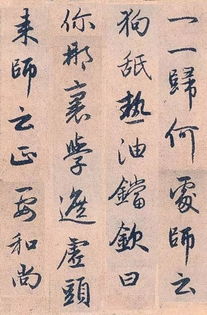 一一歸何處師云
狗舐熱油鐺欽曰
你那裏學遮虛頭
来師云正要和尚